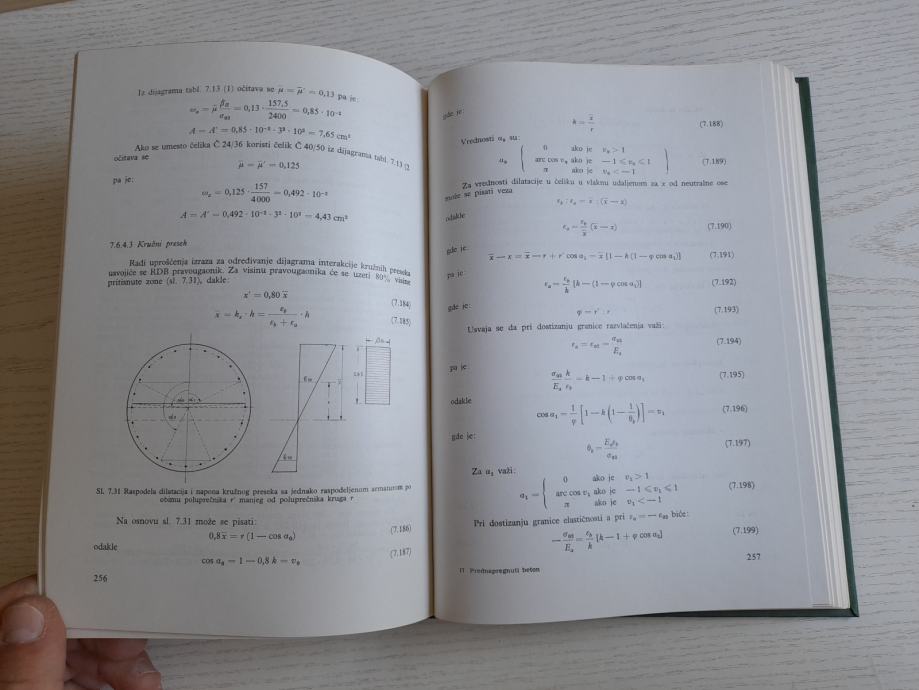 Iz dijagrama tabl. 7.13 (1) očitava se μ̄ = μ̄′ = 0,13 pa je:
ωₐ = μ̄ β_B/σ₀₂ = 0,13 · 157,5/2400 = 0,85 · 10⁻²
A = A′ = 0,85 · 10⁻² · 3² · 10² = 7,65 cm²
Ako se umesto čelika Č 24/36 koristi čelik Č 40/50 iz dijagrama tabl. 7.13 (2
očitava se
μ̄ = μ̄′ = 0,125
pa je:
ωₐ = 0,125 · 157/4000 = 0,492 · 10⁻²
A = A′ = 0,492 · 10⁻² · 3² · 10² = 4,43 cm²
7.6.4.3 Kružni presek
Radi uprošćenja izraza za određivanje dijagrama interakcije kružnih preseka
usvojiće se RDB pravougaonik. Za visinu pravougaonika će se uzeti 80% visine
pritisnute zone (sl. 7.31), dakle:
x′ = 0,80 x̄ (7.184)
x̄ = kₐ · h = ε_b/(ε_b + εₐ) · h (7.185)
Sl. 7.31 Raspodela dilatacija i napona kružnog preseka sa jednako raspodeljenom armaturom po
obimu poluprečnika r′ manjeg od poluprečnika kruga r
Na osnovu sl. 7.31 može se pisati:
0,8 x̄ = r (1 — cos α₀) (7.186)
odakle
cos α₀ = 1 — 0,8 k = υ₀ (7.187)
256
gde je:
k = x̄/r (7.188)
Vrednosti α₀ su:
0 ako je υ₀ > 1
α₀ arc cos υ₀ ako je — 1 ⩽ υ₀ ⩽ 1 (7.189)
π ako je υ₀ < — 1
Za vrednosti dilatacije u čeliku u vlaknu udaljenom za x od neutralne ose
može se pisati veza
ε_b : εₐ = x̄ : (x̄ — x)
odakle
εₐ = ε_b/x̄ (x̄ — x) (7.190)
gde je:
x̄ — x = x̄ — r + r′ cos α₁ = x̄ [1 — k (1 — φ cos α₁)] (7.191)
pa je:
εₐ = ε_b/k [k — (1 — φ cos α₁)] (7.192)
gde je:
φ = r′ : r (7.193)
Usvaja se da pri dostizanju granice razvlačenja važi:
εₐ = ε₀₂ = σ₀₂/Eₐ (7.194)
pa je:
σ₀₂/Eₐ k/ε_b = k — 1 + φ cos α₁ (7.195)
odakle
cos α₁ = 1/φ [1 — k (1 — 1/θ_b)] = υ₁ (7.196)
gde je:
θ_b = Eₐε_b/σ₀₂ (7.197)
Za α₁ važi:
0 ako je υ₁ > 1
α₁ = arc cos υ₁ ako je — 1 ⩽ υ₁ ⩽ 1 (7.198)
π ako je υ₁ < — 1
Pri dostizanju granice elastičnosti a pri εₐ = — ε₀₂ biće:
— σ₀₂/Eₐ = ε_b/k [k — 1 + φ cos α₂] (7.199)
17 Prednapregnuti beton
257